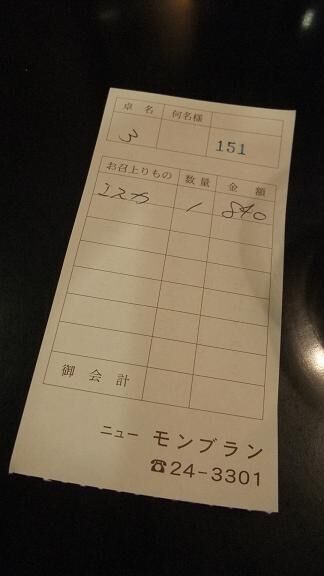 卓名 何名様
3 151
お召上りもの 数量 金額
エスカ 1 840
御会計
ニューモンブラン
☎24-3301